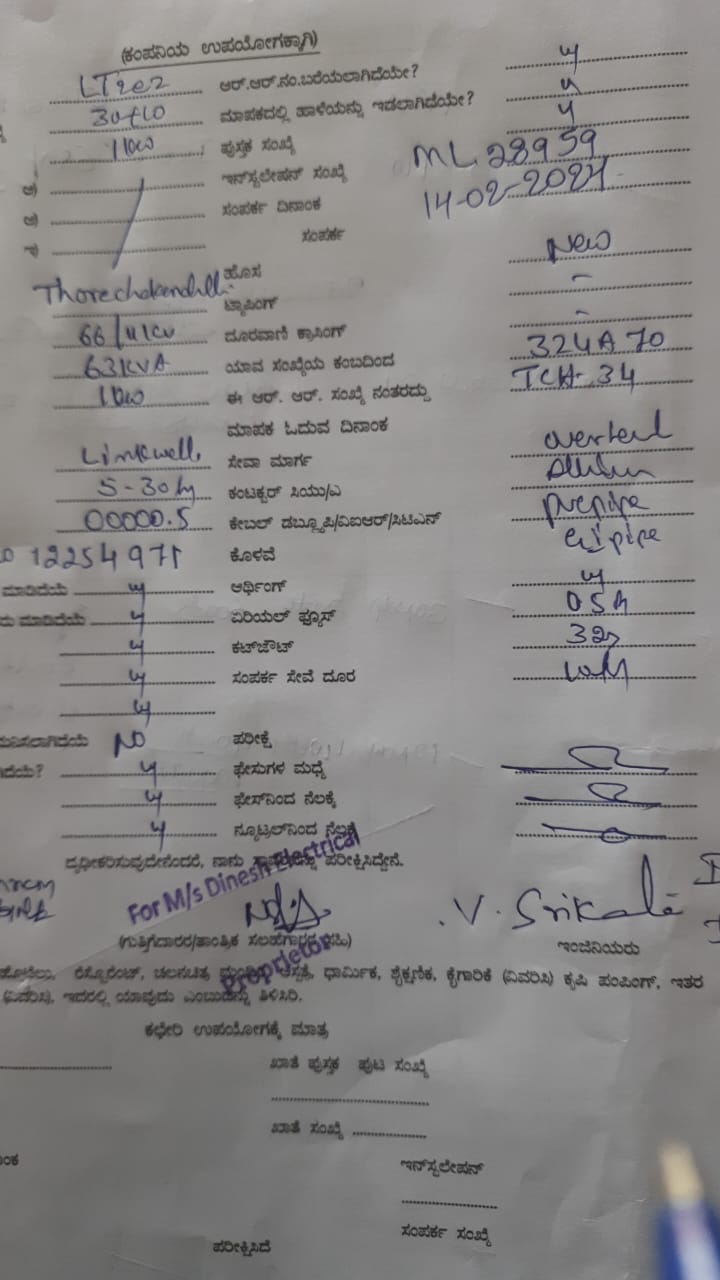 (ಕಂಪನಿಯ ಉಪಯೋಗಕ್ಕಾಗಿ)
LT2e2 ಆರ್.ಆರ್.ನಂ.ಬರೆಯಲಾಗಿದೆಯೇ? y
ಮಾಪಕದಲ್ಲಿ ಹಾಳೆಯನ್ನು ಇಡಲಾಗಿದೆಯೇ? y
ಪುಸ್ತಕ ಸಂಖ್ಯೆ y
ಇನ್‌ಸ್ಟಲೇಷನ್ ಸಂಖ್ಯೆ ML 28959
ಸಂಪರ್ಕ ದಿನಾಂಕ 14-02-2024
ಸಂಪರ್ಕ
Thorechakanahalli ಹೊಸ New
ಟ್ಯಾಪಿಂಗ್ -
66/11KV ದೂರವಾಣಿ ಕ್ರಾಸಿಂಗ್ -
63KVA ಯಾವ ಸಂಖ್ಯೆಯ ಕಂಬದಿಂದ 324A 70
1kw ಈ ಆರ್. ಆರ್. ಸಂಖ್ಯೆ ನಂತರದ್ದು TCH-34
ಮಾಪಕ ಓದುವ ದಿನಾಂಕ
Linkwell ಸೇವಾ ಮಾರ್ಗ overhead
5-30 ಕಂಟಕ್ಟರ್ ಸಿಯು/ಎ
00000.5 ಕೇಬಲ್ ಡಬ್ಲ್ಯೂಪಿ/ವಿಐಆರ್/ಸಿಟಿಎನ್ pvcpipe
12254971 ಕೊಳವೆ Gi pipe
ಮಾಡಿದೆಯೆ y ಆರ್ಥಿಂಗ್ y
ಮಾಡಿದೆಯೆ y ಏರಿಯಲ್ ಫ್ಯೂಸ್
y ಕಟ್‌ಔಟ್ 32
y ಸಂಪರ್ಕ ಸೇವೆ ದೂರ
y
NO ಪರೀಕ್ಷೆ
y ಫೇಸುಗಳ ಮಧ್ಯೆ
y ಫೇಸ್‌ನಿಂದ ನೆಲಕ್ಕೆ
y ನ್ಯೂಟ್ರಲ್‌ನಿಂದ ನೆಲಕ್ಕೆ
ದೃಢೀಕರಿಸುವುದೇನೆಂದರೆ, ನಾನು ಪರೀಕ್ಷಿಸಿದ್ದೇನೆ.
For M/s Dinesh Electrical
V. Srikala
(ಗುತ್ತಿಗೆದಾರರ/ತಾಂತ್ರಿಕ ಸಲಹೆಗಾರರ ಸಹಿ) ಇಂಜಿನಿಯರು
Proprietor
ಧಾರ್ಮಿಕ, ಶೈಕ್ಷಣಿಕ, ಕೈಗಾರಿಕೆ (ವಿವರಿಸಿ) ಕೃಷಿ ಪಂಪಿಂಗ್, ಇತರ
(ವಿವರಿಸಿ), ಇದರಲ್ಲಿ ಯಾವುದು ಎಂಬುದನ್ನು ತಿಳಿಸಿರಿ.
ಕಛೇರಿ ಉಪಯೋಗಕ್ಕೆ ಮಾತ್ರ
ಖಾತೆ ಪುಸ್ತಕ ಪುಟ ಸಂಖ್ಯೆ
ಖಾತೆ ಸಂಖ್ಯೆ
ಇನ್‌ಸ್ಟಲೇಷನ್
ಸಂಪರ್ಕ ಸಂಖ್ಯೆ
ಪರೀಕ್ಷಿಸಿದೆ